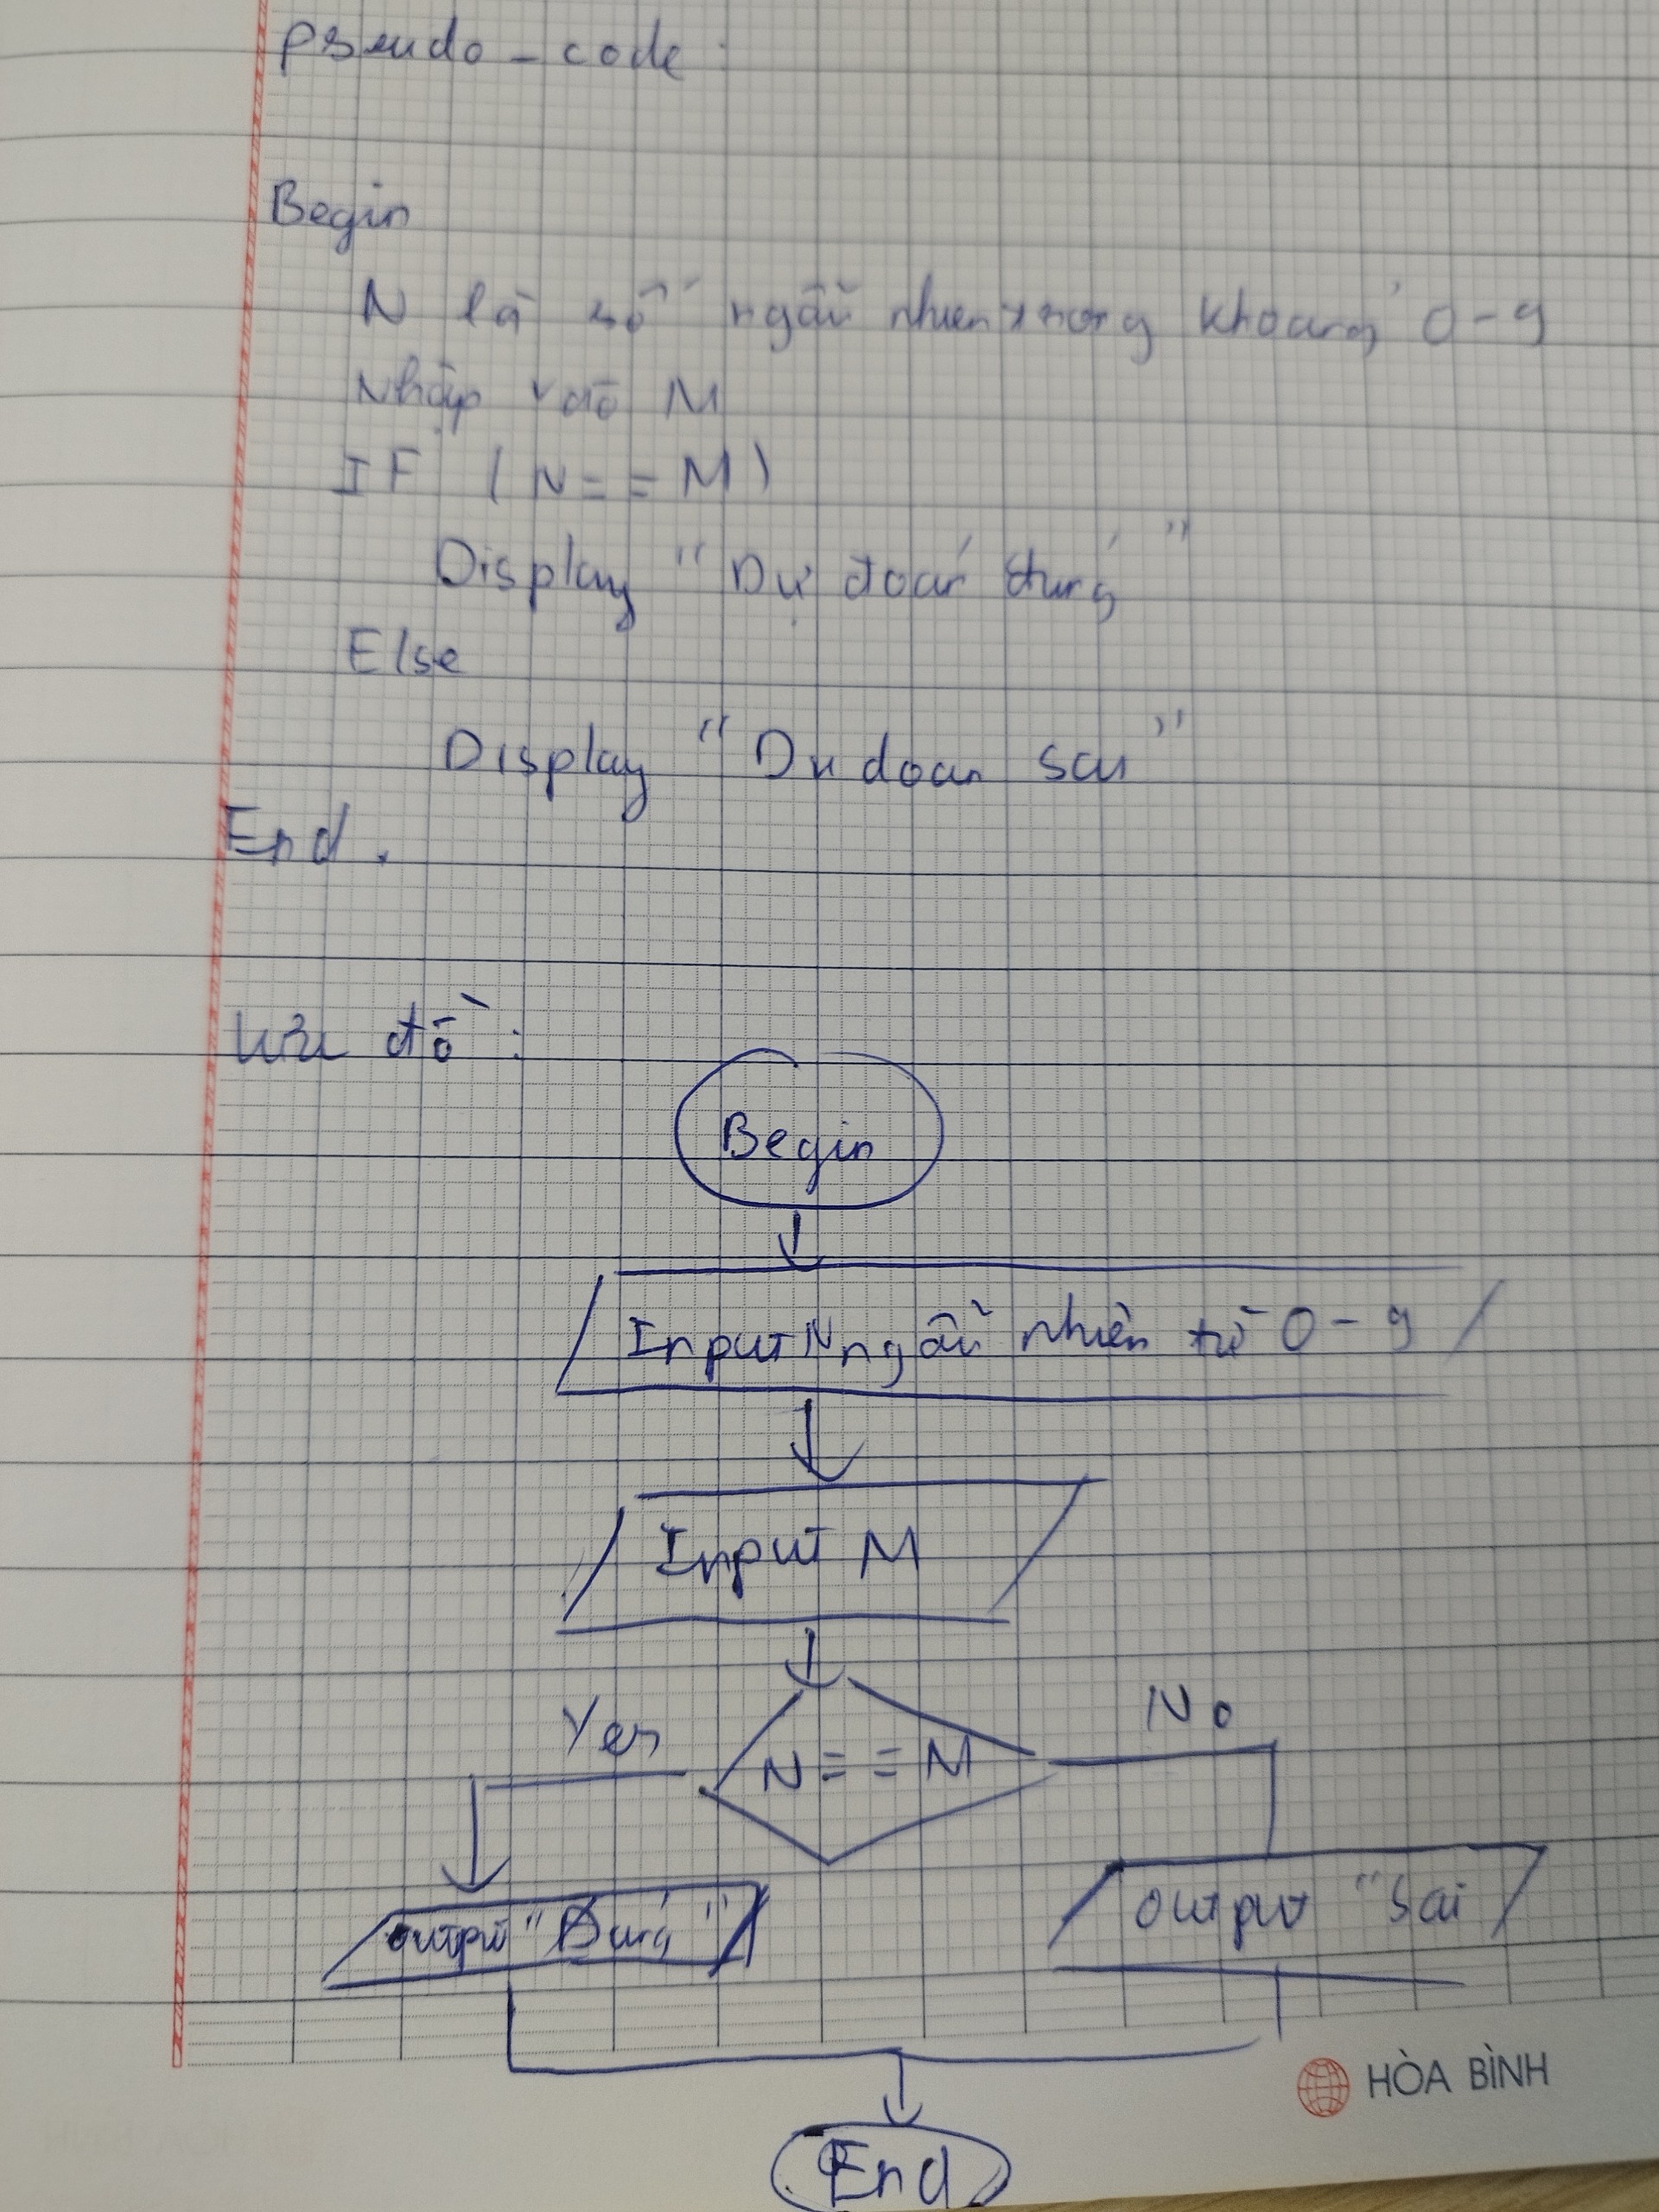 pseudo-code:
Begin
N là số ngẫu nhiên trong khoảng 0-9
Nhập vào M
IF (N==M)
Display "Dự đoán đúng"
Else
Display "Du doan sai"
End.
Lưu đồ:
Begin
Input N ngẫu nhiên từ 0-9
Input M
Yes
No
N==M
output "Đúng"
output "Sai
HÒA BÌNH
End